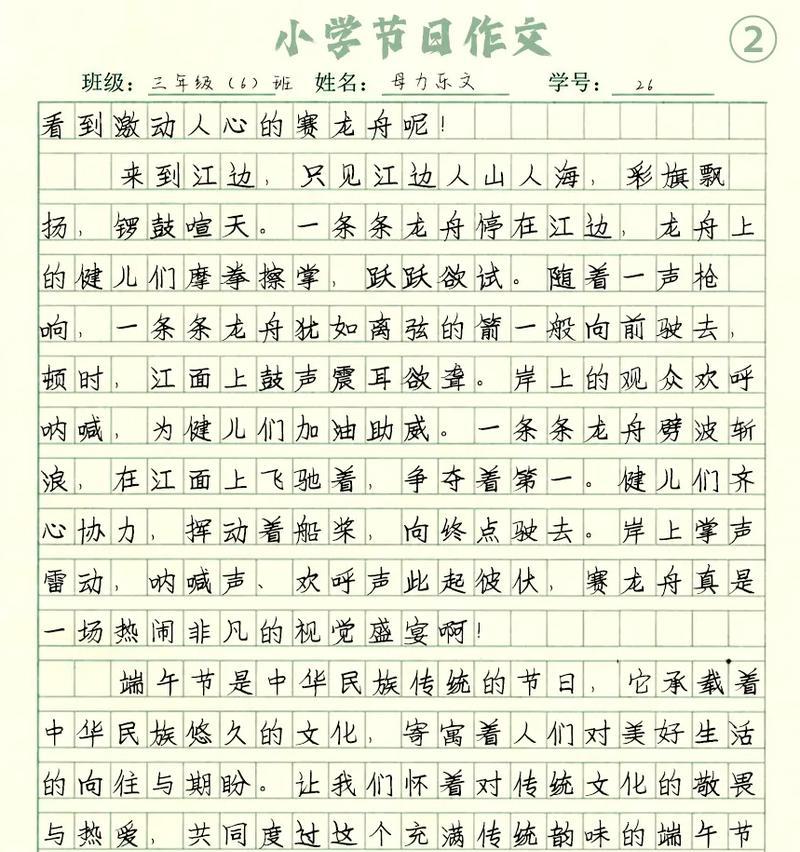 小学节日作文
②
班级：三年级（6）班 姓名：母力乐文 学号：26
看到激动人心的赛龙舟呢！
来到江边，只见江边人山人海，彩旗飘
扬，锣鼓喧天。一条条龙舟停在江边，龙舟上
的健儿们摩拳擦掌，跃跃欲试。随着一声枪
响，一条条龙舟犹如离弦的箭一般向前驶去，
顿时，江面上鼓声震耳欲聋。岸上的观众欢呼
呐喊，为健儿们加油助威。一条条龙舟劈波斩
浪，在江面上飞驰着，争夺着第一。健儿们齐
心协力，挥动着船桨，向终点驶去。岸上掌声
雷动，呐喊声、欢呼声此起彼伏，赛龙舟真是
一场热闹非凡的视觉盛宴啊！
端午节是中华民族传统的节日，它承载着
中华民族悠久的文化，寄寓着人们对美好生活
的向往与期盼。让我们怀着对传统文化的敬畏
与热爱，共同度过这个充满传统韵味的端午节